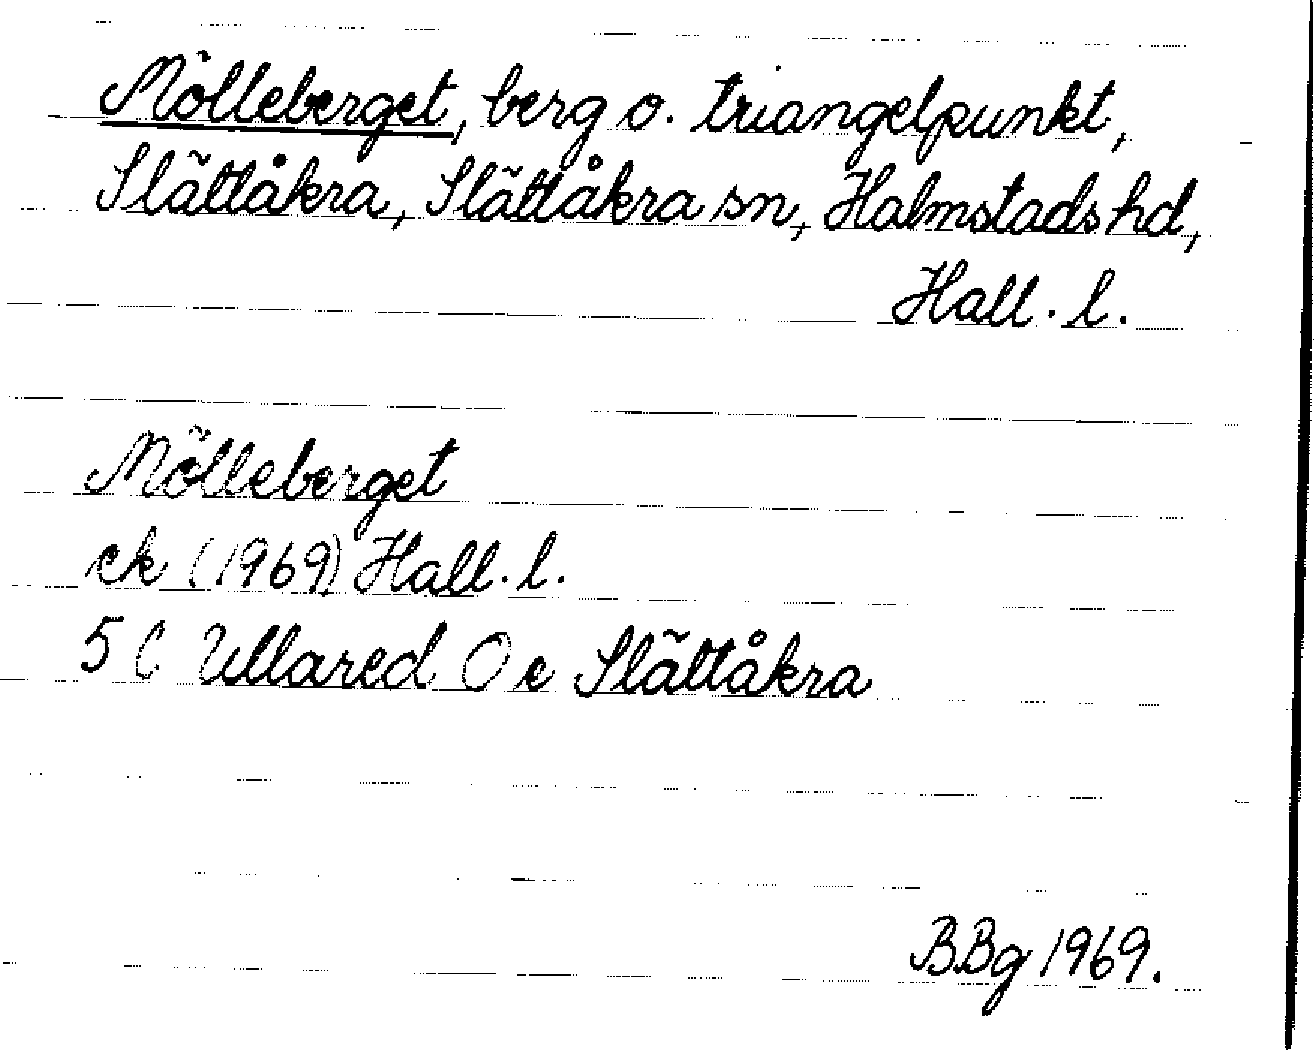 Mölleberget, berg o. triangelpunkt,
Slättåkra, Slättåkra sn, Halmstads hd,
Hall. l.
Mölleberget
ek (1969) Hall. l.
5 C Ullared O e Slättåkra
BBg 1969.